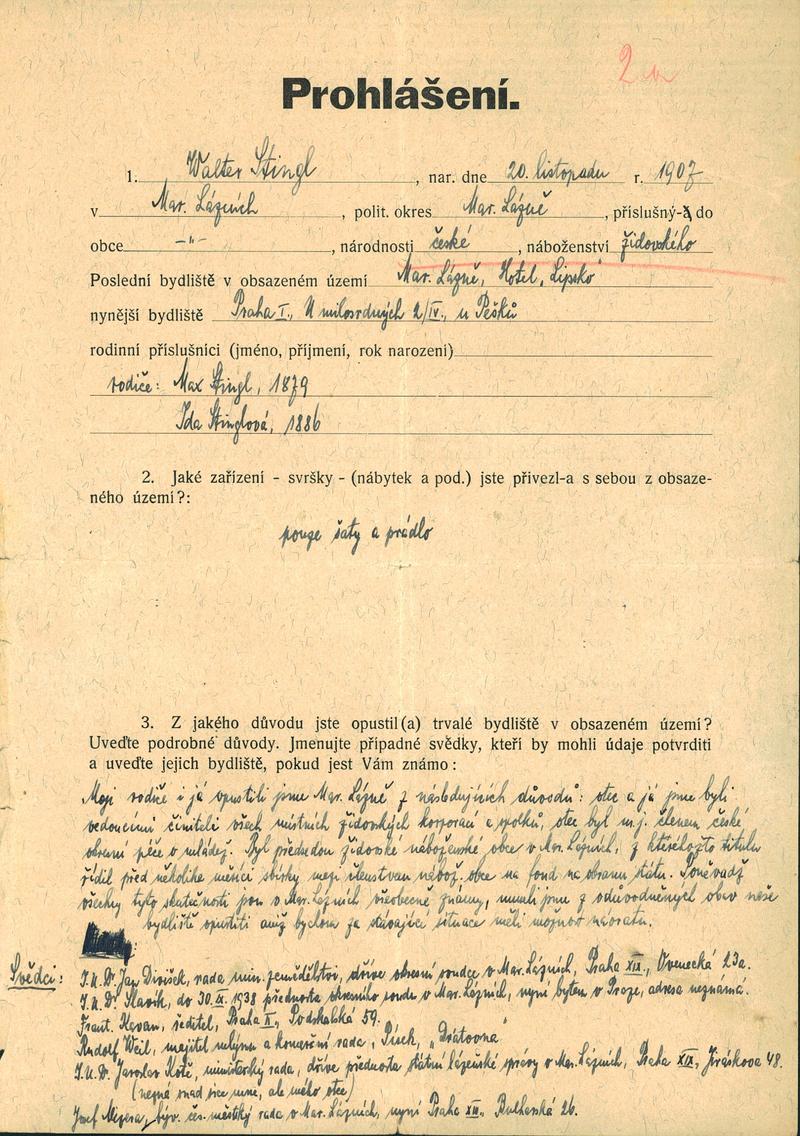 2
Prohlášení.
1. Walter Stingl, nar. dne 20. listopadu r. 1907
v Mar. Lázních, polit. okres Mar. Lázně, příslušný-á do
obce —"—, národnosti české, náboženství židovského
Poslední bydliště v obsazeném území Mar. Lázně, Hotel „Lipsko"
nynější bydliště Praha I., U milosrdných 2/IV., u Pešků
rodinní příslušníci (jméno, příjmení, rok narození)
rodiče: Max Stingl, 1879
Ida Stinglová, 1886
2. Jaké zařízení - svršky - (nábytek a pod.) jste přivezl-a s sebou z obsaze-
ného území?:
pouze šaty a prádlo
3. Z jakého důvodu jste opustil(a) trvalé bydliště v obsazeném území?
Uveďte podrobné důvody. Jmenujte případné svědky, kteří by mohli údaje potvrditi
a uveďte jejich bydliště, pokud jest Vám známo:
Moji rodiče i já opustili jsme Mar. Lázně z následujících důvodů: otec a já jsme byli
vedoucími činiteli všech místních židovských korporací a spolků, otec byl m.j. členem české
okresní péče o mládež. Byl předsedou židovské náboženské obce v Mar. Lázních, z kteréhožto titulu
řídil před několika měsíci sbírky mezi členstvem nábož. obce na fond na obranu státu. Poněvadž
všechny tyto skutečnosti jsou v Mar. Lázních všeobecně známy, museli jsme z odůvodněných obav naše
bydliště opustiti aniž bychom za stávající situace měli možnost návratu.
Svědci: J.U.Dr. Jan Divíšek, rada min. zemědělství, dříve okresní soudce v Mar. Lázních, Praha XIX., Ovenecká 23a.
J.U.Dr. Slavík, do 30.IX.1938 přednosta okresního soudu v Mar. Lázních, nyní bytem v Praze, adresa neznámá.
Frant. Kavan, ředitel, Praha II., Podskalská 59.
Rudolf Weil, majitel mlýnu a komerční rada, Písek, „Drátovna"
J.U.Dr. Jaroslav Kotě, ministerský rada, dříve přednosta státní lázeňské správy v Mar. Lázních, Praha XIX, Jiráskova 48.
(nezná snad sice mne, ale mého otce)
Josef, býv. čes. městský rada v Mar. Lázních, nyní Praha XII., Bulharská 26.